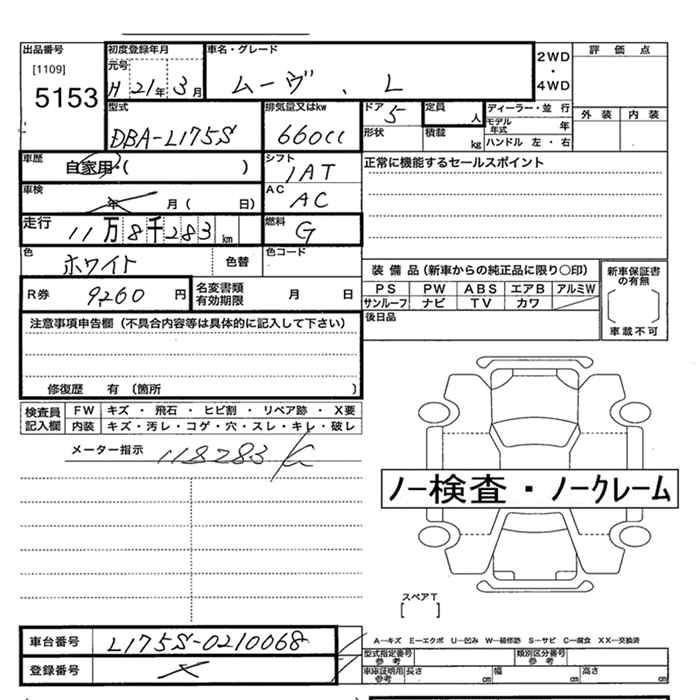 出品番号 初度登録年月 車名・グレード 2WD・4WD 評価点
[1109] 元号
5153 H 21年 3月 ムーヴ . L
型式 排気量又はkw ドア 5 定員 人 ディーラー・並行 外装 内装
モデル年式 年
DBA-L175S 660cc 形状 積載 kg ハンドル 左・右
車歴 自家用・( ) シフト 1AT 正常に機能するセールスポイント
車検 年 月 ( 日) AC AC
走行 11万8千283km 燃料 G
色 ホワイト 色替 色コード
装備品(新車からの純正品に限り○印) 新車保証書の有無
R券 9260 円 名変書類有効期限 月 日 PS PW ABS エアB アルミW
サンルーフ ナビ TV カワ
注意事項申告欄(不具合内容等は具体的に記入して下さい) 後日品 車載不可
修復歴 有 (箇所 )
検査員記入欄 FW キズ ・ 飛石 ・ ヒビ割 ・ リペア跡 ・ X要
内装 キズ・汚レ・コゲ・穴・スレ・キレ・破レ
メーター指示 118283
ノー検査・ノークレーム
スペアT
[ ]
車台番号 L175S-0210068 A−キズ E−エクボ U−凹み W−補修跡 S−サビ C−腐食 XX−交換済
型式指定番号 参考 類別区分番号 参考
登録番号 車庫証明用 参考 長さ cm 幅 cm 高さ cm